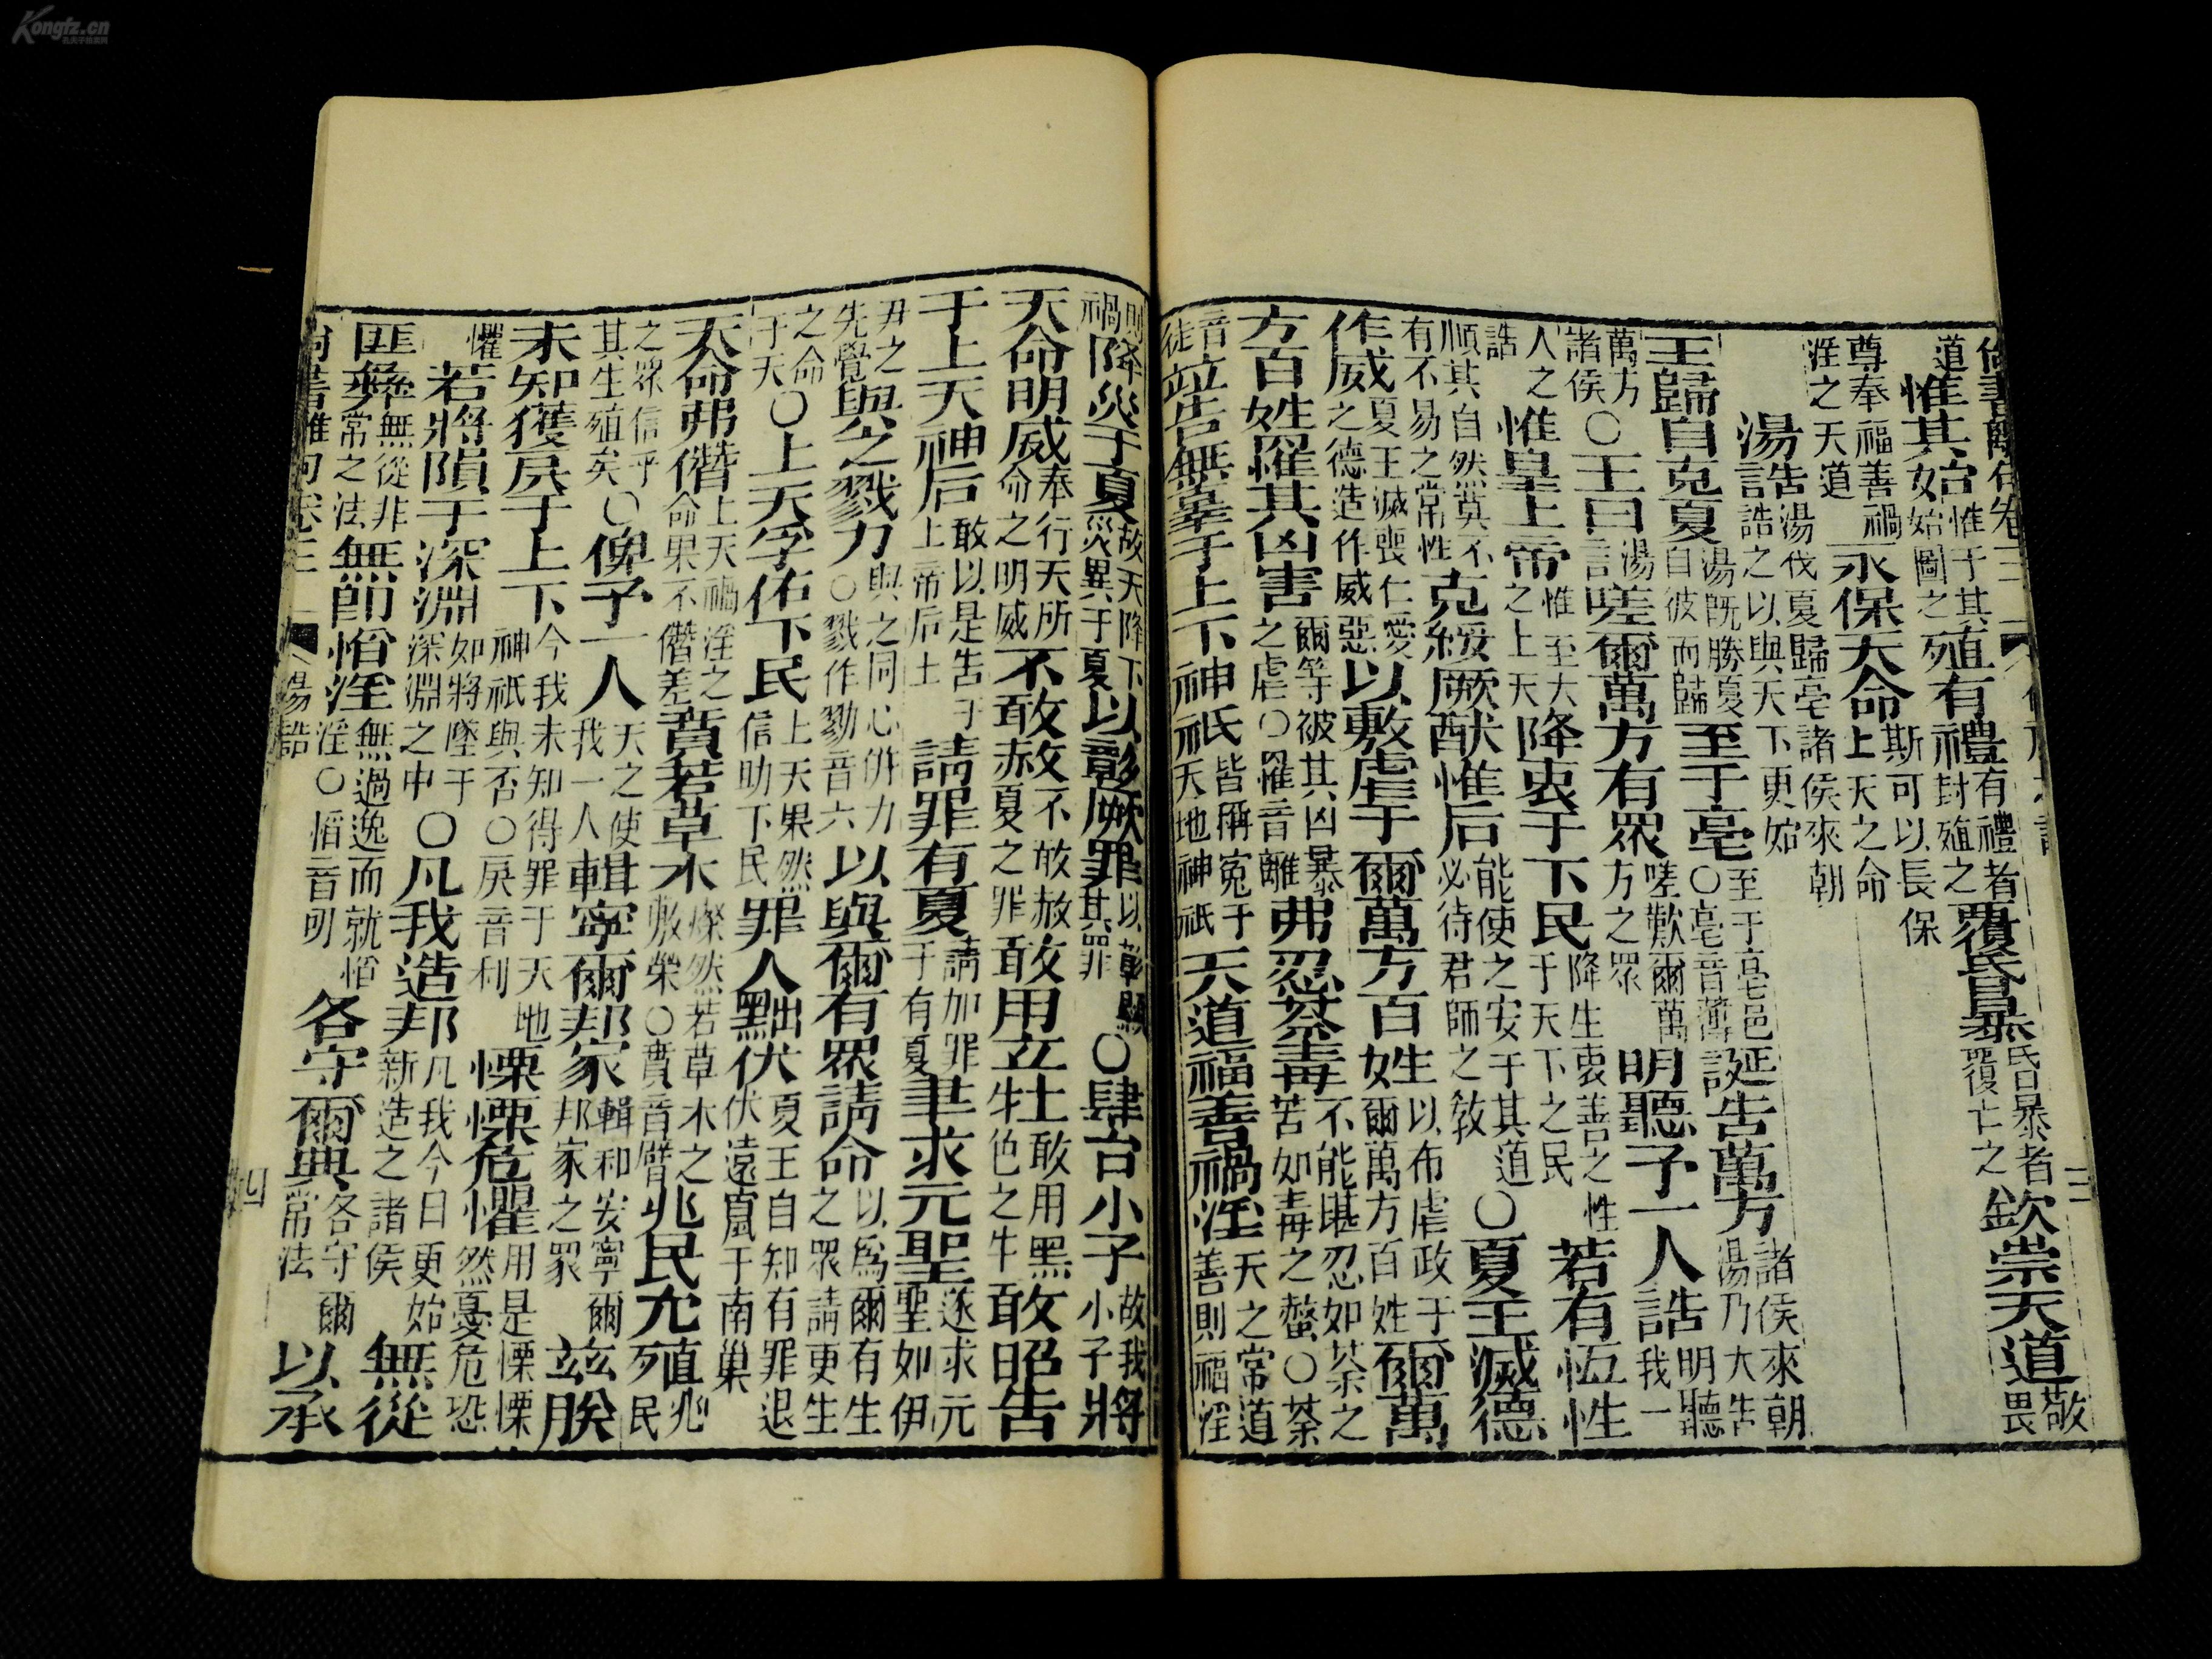 尚書離句卷三 仲虺之誥 三
道惟其始惟于其始圖之殖有禮有禮者封殖之覆昏暴昏暴者覆亡之欽崇天道敬畏
尊奉福善禍淫之天道永保天命斯可以長保上天之命
湯誥湯伐夏歸亳諸侯來朝誥之以與天下更始
王歸自克夏湯既勝夏自彼而歸至于亳至于亳邑○亳音薄誕告萬方諸侯來朝湯乃大告
萬方諸侯○王曰湯言嗟爾萬方有眾嗟歎爾萬方之眾明聽予一人誥明聽我一
人之誥惟皇上帝惟至大之上天降衷于下民降生衷善之性于天下之民若有恆性
順其自然莫不有不易之常性克綏厥猷惟后能使之安于其道必待君師之教○夏王滅德
作威夏王滅喪仁愛之德造作威惡以敷虐于爾萬方百姓以布虐政于爾萬方百姓爾萬
方百姓罹其凶害爾等被其凶暴之虐○罹音離弗忍荼毒不能堪忍如荼之苦如毒之螫○荼
音徒並告無辜于上下神祇皆稱冤于天地神祇天道福善禍淫天之常道善則福淫
則禍降災于夏故天降下災異于夏以彰厥罪以彰顯其罪○肆台小子故我小子將
天命明威奉行天所命之明威不敢赦不敢赦夏之罪敢用玄牡敢用黑色之牛敢昭告
于上天神后敢以是告于上帝后土請罪有夏請加罪于有夏聿求元聖遂求元聖如伊
尹之先覺與之戮力與之同心併力○戮作勠音六以與爾有眾請命以爲爾有生之眾請更生
之命于天○上天孚佑下民上天果然信助下民罪人黜伏夏王自知有罪退伏遠竄于南巢
天命弗僭上天禍淫之命果不僭差賁若草木燦然若草木之敷榮○賁音臂兆民允殖兆民
之眾信乎其生殖矣○俾予一人天之使我一人輯寧爾邦家輯和安寧爾邦家之眾茲朕
未知獲戾于上下今我未知得罪于天地神祇與否○戾音利慄慄危懼用是慄慄然憂危恐
懼若將隕于深淵如將墜于深淵之中○凡我造邦凡我今日更始新造之諸侯無從
匪彝無從非常之法無即慆淫無過逸而就慆淫○慆音叨各守爾典各守爾常法以承
尚書離句卷三 湯誥 四
Kongfz.cn
孔夫子旧书网